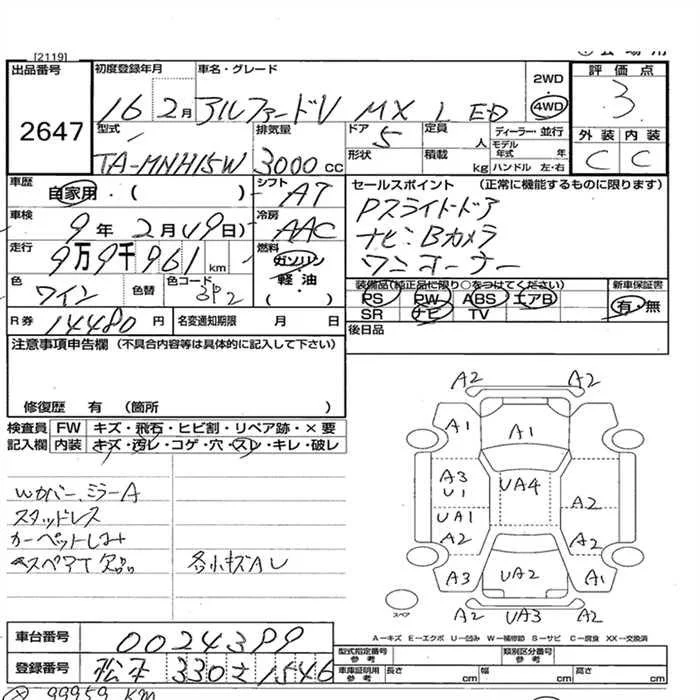 [2119]
出品番号
2647
初度登録年月
16 2月
車名・グレード
アルファードV MX L ED
2WD
4WD
評価点
3
外装 内装
C C
型式
TA-MNH15W
排気量
3000 cc
ドア
5
形状
定員
人
積載
kg
ディーラー・並行
モデル年式 年
ハンドル 左・右
車歴
自家用・( )
シフト
AT
車検
9年 2月(19日)
冷房
AAC
走行
9万9千961km
燃料
ガソリン
軽油
( )
色
ワイン
色替
色コード
3P2
R券 14480円
名変通知期限 月 日
セールスポイント (正常に機能するものに限ります)
Pスライドドア
ナビ:Bカメラ
ワンオーナー
装備品(純正品に限り○をつけてください)
PS PW ABS エアB
SR ナビ TV
新車保証書
有・無
後日品
注意事項申告欄 (不具合内容等は具体的に記入して下さい)
修復歴 有 (箇所 )
検査員
記入欄
FW キズ・飛石・ヒビ割・リペア跡・×要
内装 キズ・汚レ・コゲ・穴・スレ・キレ・破レ
Wカバー、ミラーA
スタッドレス
カーペットしみ
スペアT欠品
各小キズAU
A2 A2
A1 A1
A3 U1
UA4
UA1
A2
A2
A2
A3 UA2 A1
A2 UA3 A2
スペア
A－キズ E－エクボ U－凹み W－補修跡 S－サビ C－腐食 XX－交換済
車台番号
0024399
登録番号
松本 330 さ 1546
型式指定番号
参考
類別区分番号
参考
車庫証明用
参考
長さ cm
幅 cm
高さ cm
99959 KM